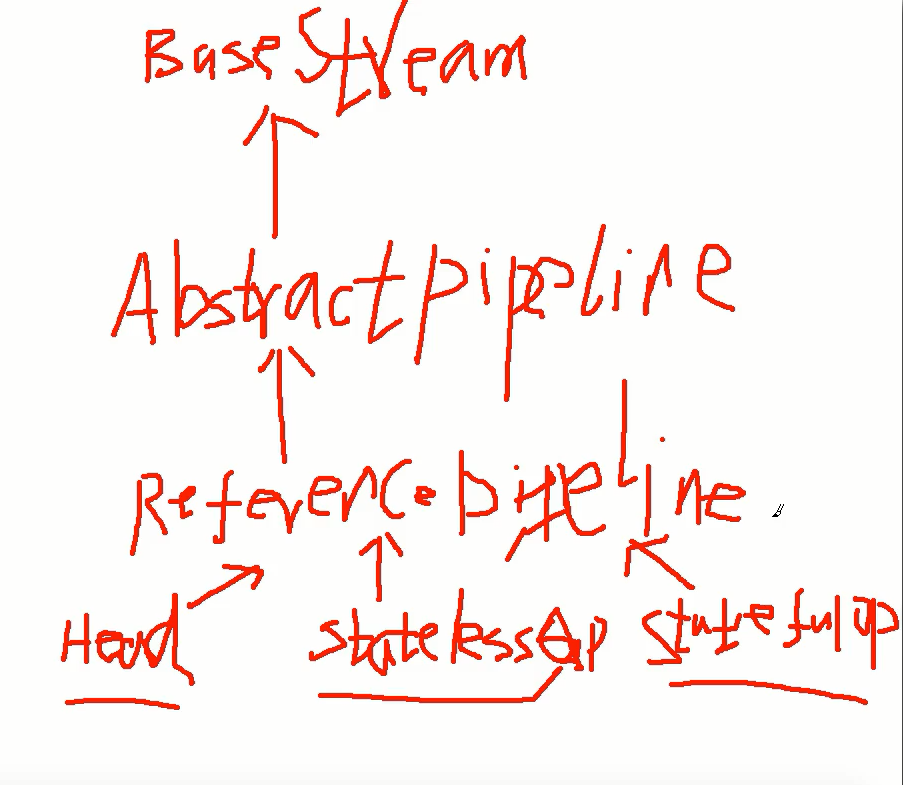 BaseStream
Abstractpipeline
Referencepipeline
Head statelessOp statefulop